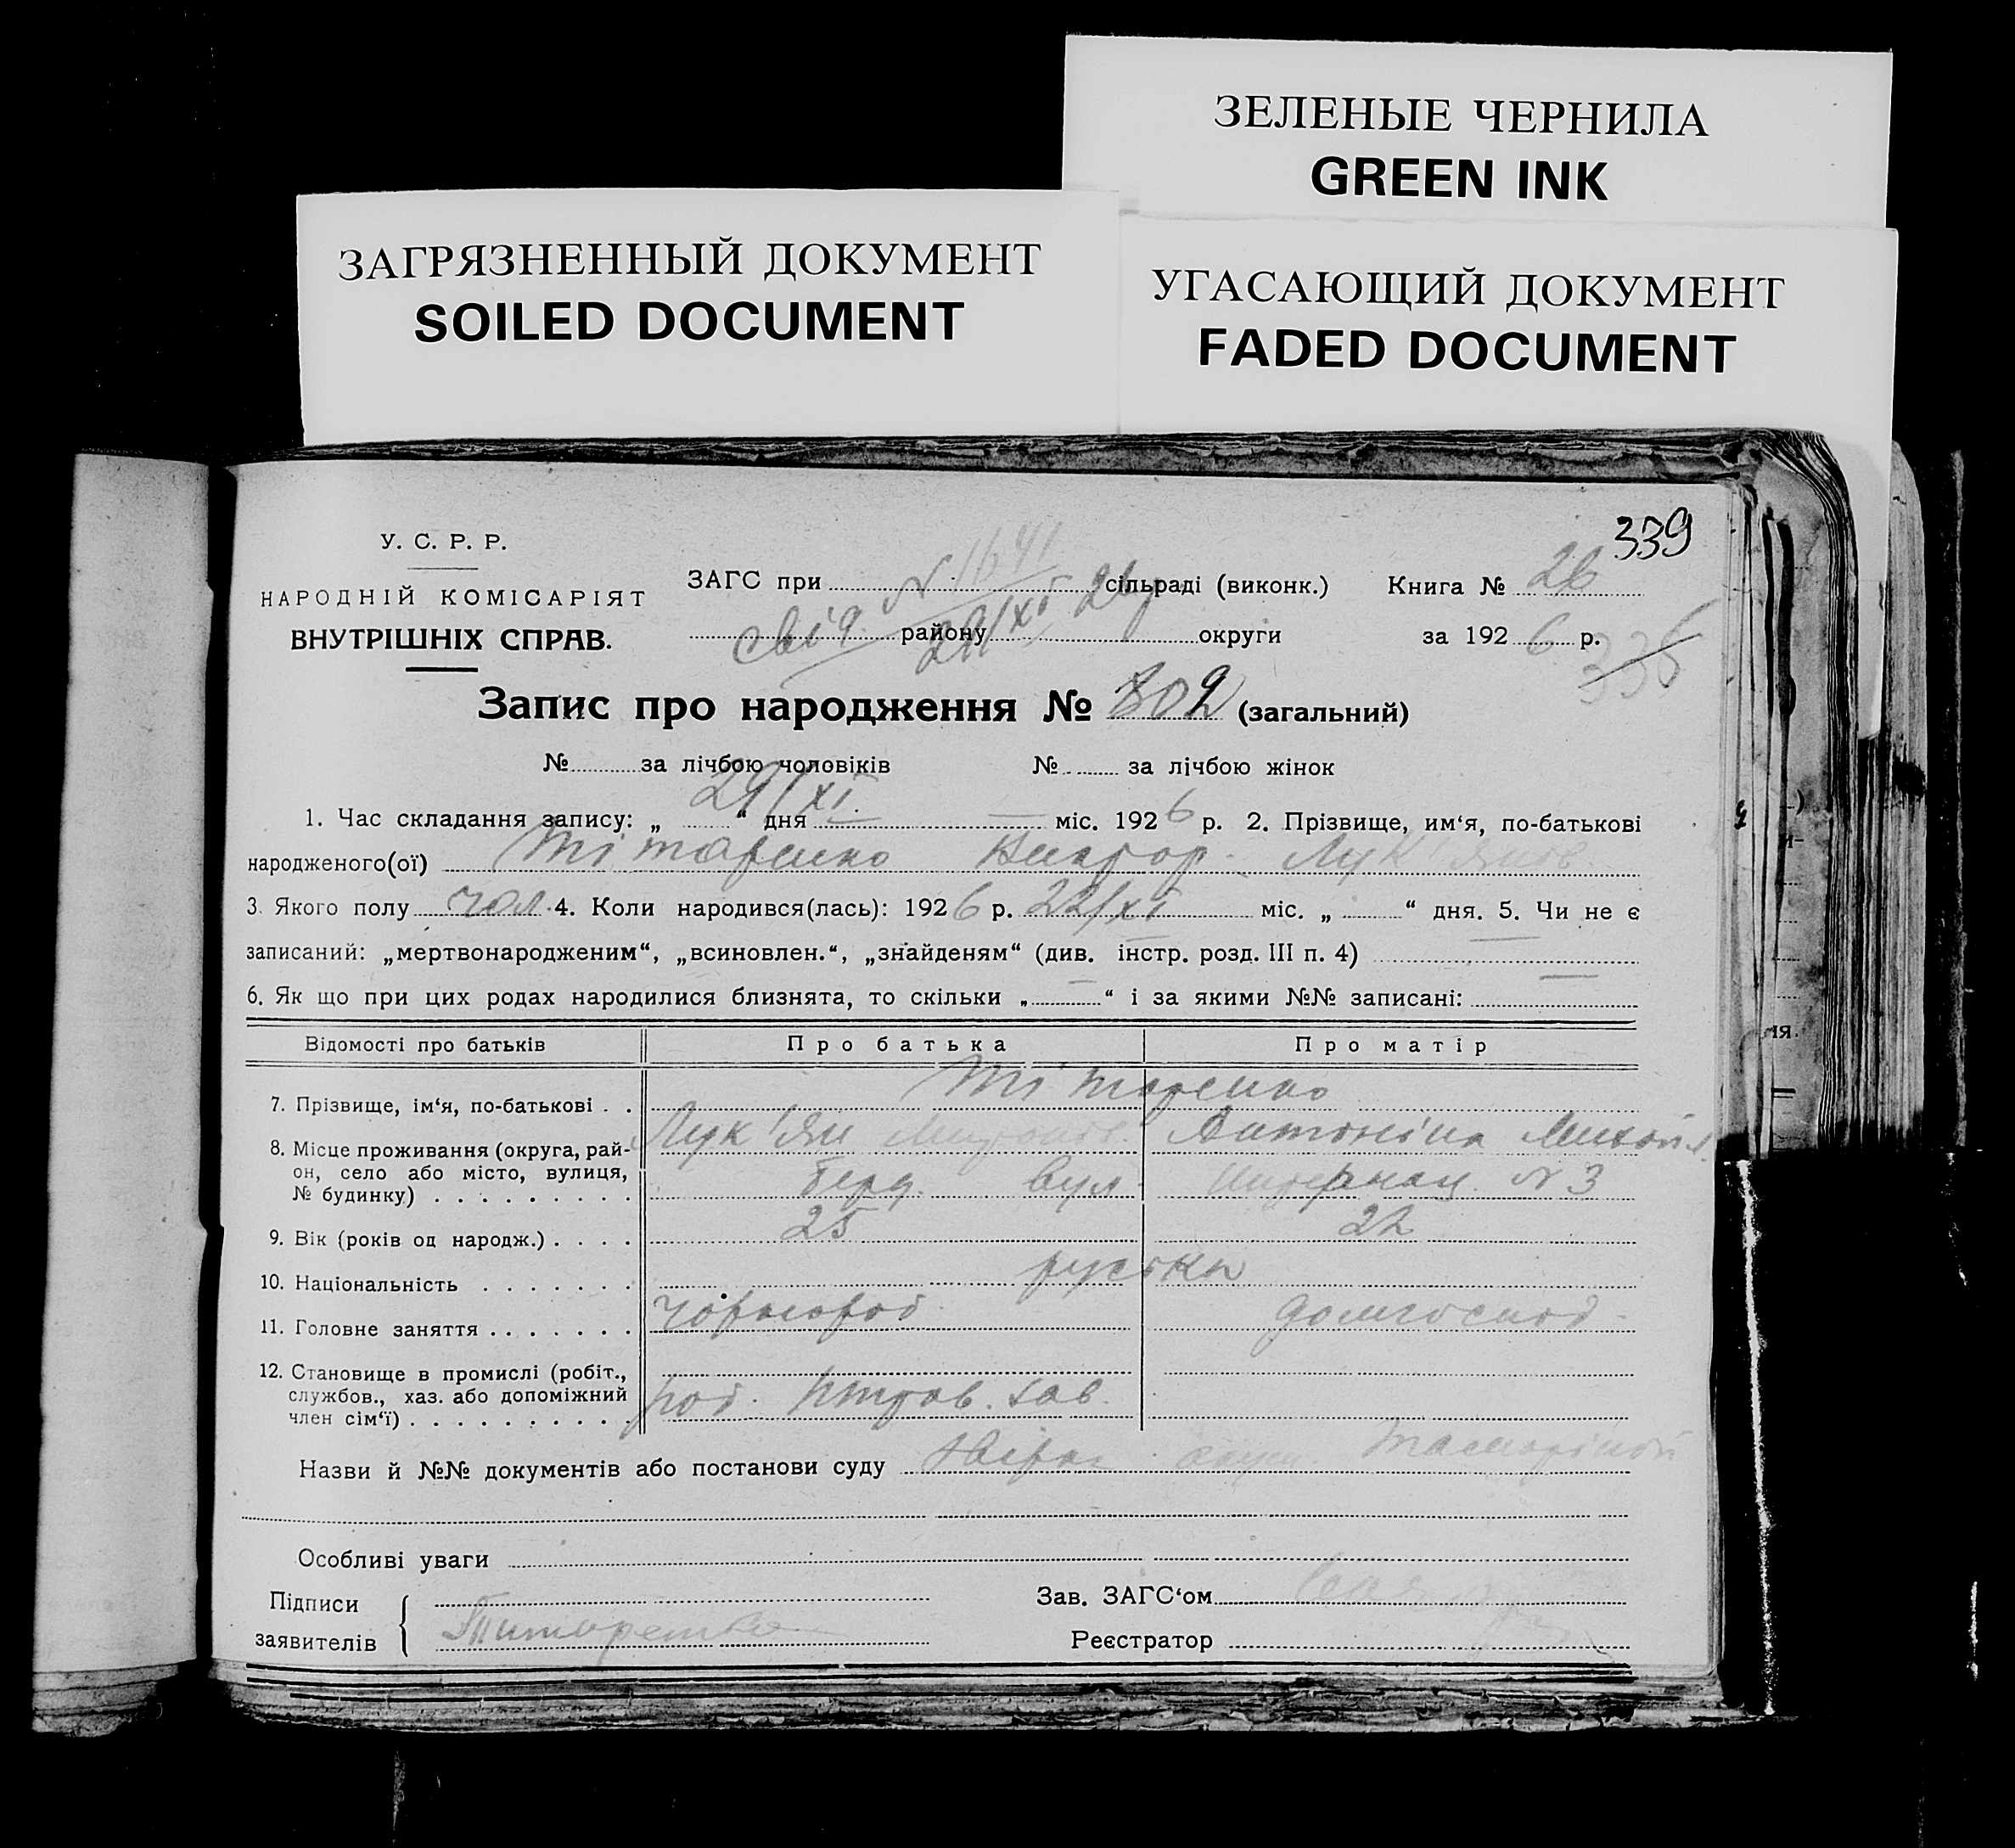 ЗЕЛЕНЫЕ ЧЕРНИЛА
GREEN INK
ЗАГРЯЗНЕННЫЙ ДОКУМЕНТ
SOILED DOCUMENT
УГАСАЮЩИЙ ДОКУМЕНТ
FADED DOCUMENT
339
У. С. Р. Р.
НАРОДНІЙ КОМІСАРІЯТ
ВНУТРІШНІХ СПРАВ.
ЗАГС при N 1641 сільраді (виконк.) Книга № 26
свід. района 29/XI 26 округи за 1926 р.
336
Запис про народження № 802 (загальний)
№ за лічбою чоловіків № за лічбою жінок
1. Час складання запису: „ 29/XI “ дня міс. 1926 р. 2. Прізвище, им‘я, по-батькові
народженого(ої) Тітаренко Віктор Лук'янов.
3. Якого полу чол. 4. Коли народився(лась): 1926 р. 22/XI міс. „ “ дня. 5. Чи не є
записаний: „мертвонародженим“, „всиновлен.“, „знайденям“ (див. інстр. розд. III п. 4)
6. Як що при цих родах народилися близнята, то скільки „ — “ і за якими №№ записані: —
Відомості про батьків Про батька Про матір
7. Прізвище, ім‘я, по-батькові Тітаренко
Лук'ян Антоніна Михайл.
8. Місце проживання (округа, рай-
он, село або місто, вулиця,
№ будинку) Берд. вул. Интернац. N 3
9. Вік (років од народж.) 25 22
10. Національність руські
11. Головне заняття чорнороб. домгоспод.
12. Становище в промислі (робіт.,
службов., хаз. або допоміжний
член сім‘ї) роб. зав.
Назви й №№ документів або постанови суду
Особливі уваги
Підписи
заявителів Титаренко
Зав. ЗАГС‘ом
Реєстратор